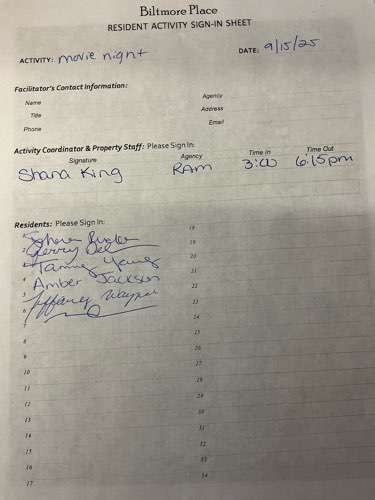 Biltmore Place
RESIDENT ACTIVITY SIGN-IN SHEET
ACTIVITY: movie night DATE: 9/15/25
Facilitator's Contact Information:
Name Agency
Title Address
Phone Email
Activity Coordinator & Property Staff: Please Sign In:
Signature Agency Time In Time Out
Shana King RAM 3:00 6:15pm
Residents: Please Sign In:
1 18
2 Gerry 19
3 Tammy Young 20
4 Amber Jackson 21
5 Tiffany Wayne 22
6 23
7 24
8 25
9 26
10 27
11 28
12 29
13 30
14 31
15 32
16 33
17 34